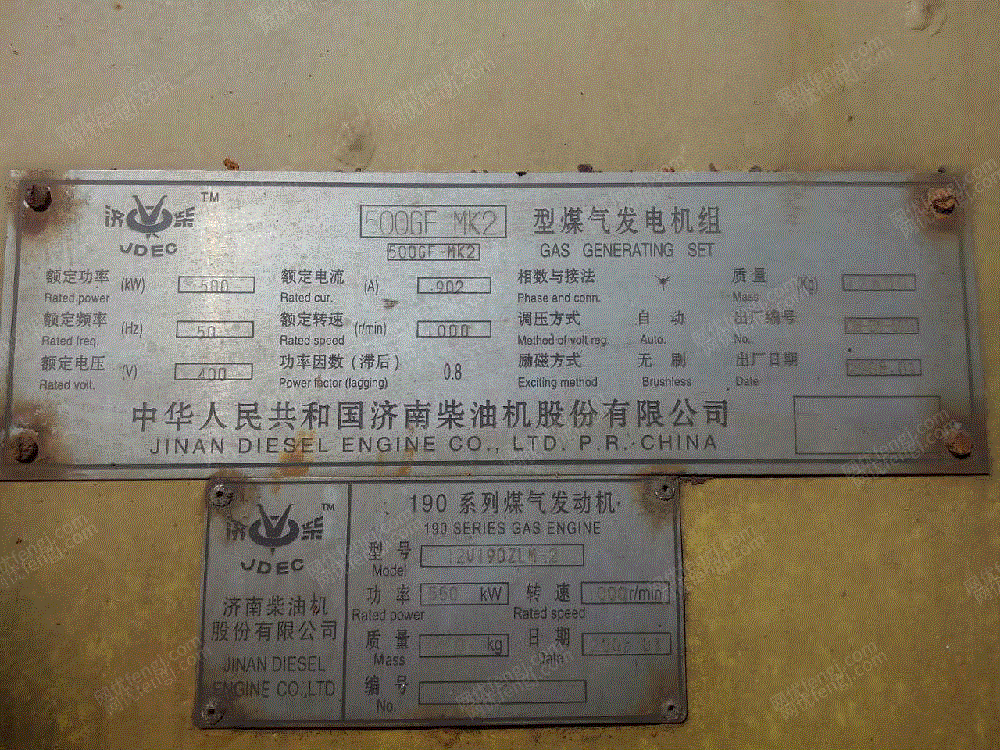 济柴 TM
JDEC
500GF-MK2 型煤气发电机组
500GF-MK2 GAS GENERATING SET
额定功率 (kW) 500 额定电流 (A) 902 相数与接法 Y 质量 (Kg)
Rated power Rated cur. Phase and conn. Mass
额定频率 (Hz) 50 额定转速 (r/min) 000 调压方式 自动 出厂编号
Rated freq. Rated speed Method of volt reg. Auto. No.
额定电压 (V) 400 功率因数(滞后) 0.8 励磁方式 无刷 出厂日期
Rated volt. Power factor (lagging) Exciting method Brushless Date
中华人民共和国济南柴油机股份有限公司
JINAN DIESEL ENGINE CO., LTD. P.R. CHINA
济柴 TM
JDEC
济南柴油机
股份有限公司
JINAN DIESEL
ENGINE CO.,LTD
190 系列煤气发动机
190 SERIES GAS ENGINE
型号 12V190ZLM-2
Model
功率 550 kW 转速 r/min
Rated power Rated speed
质量 kg 日期
Mass Date
编号
No.